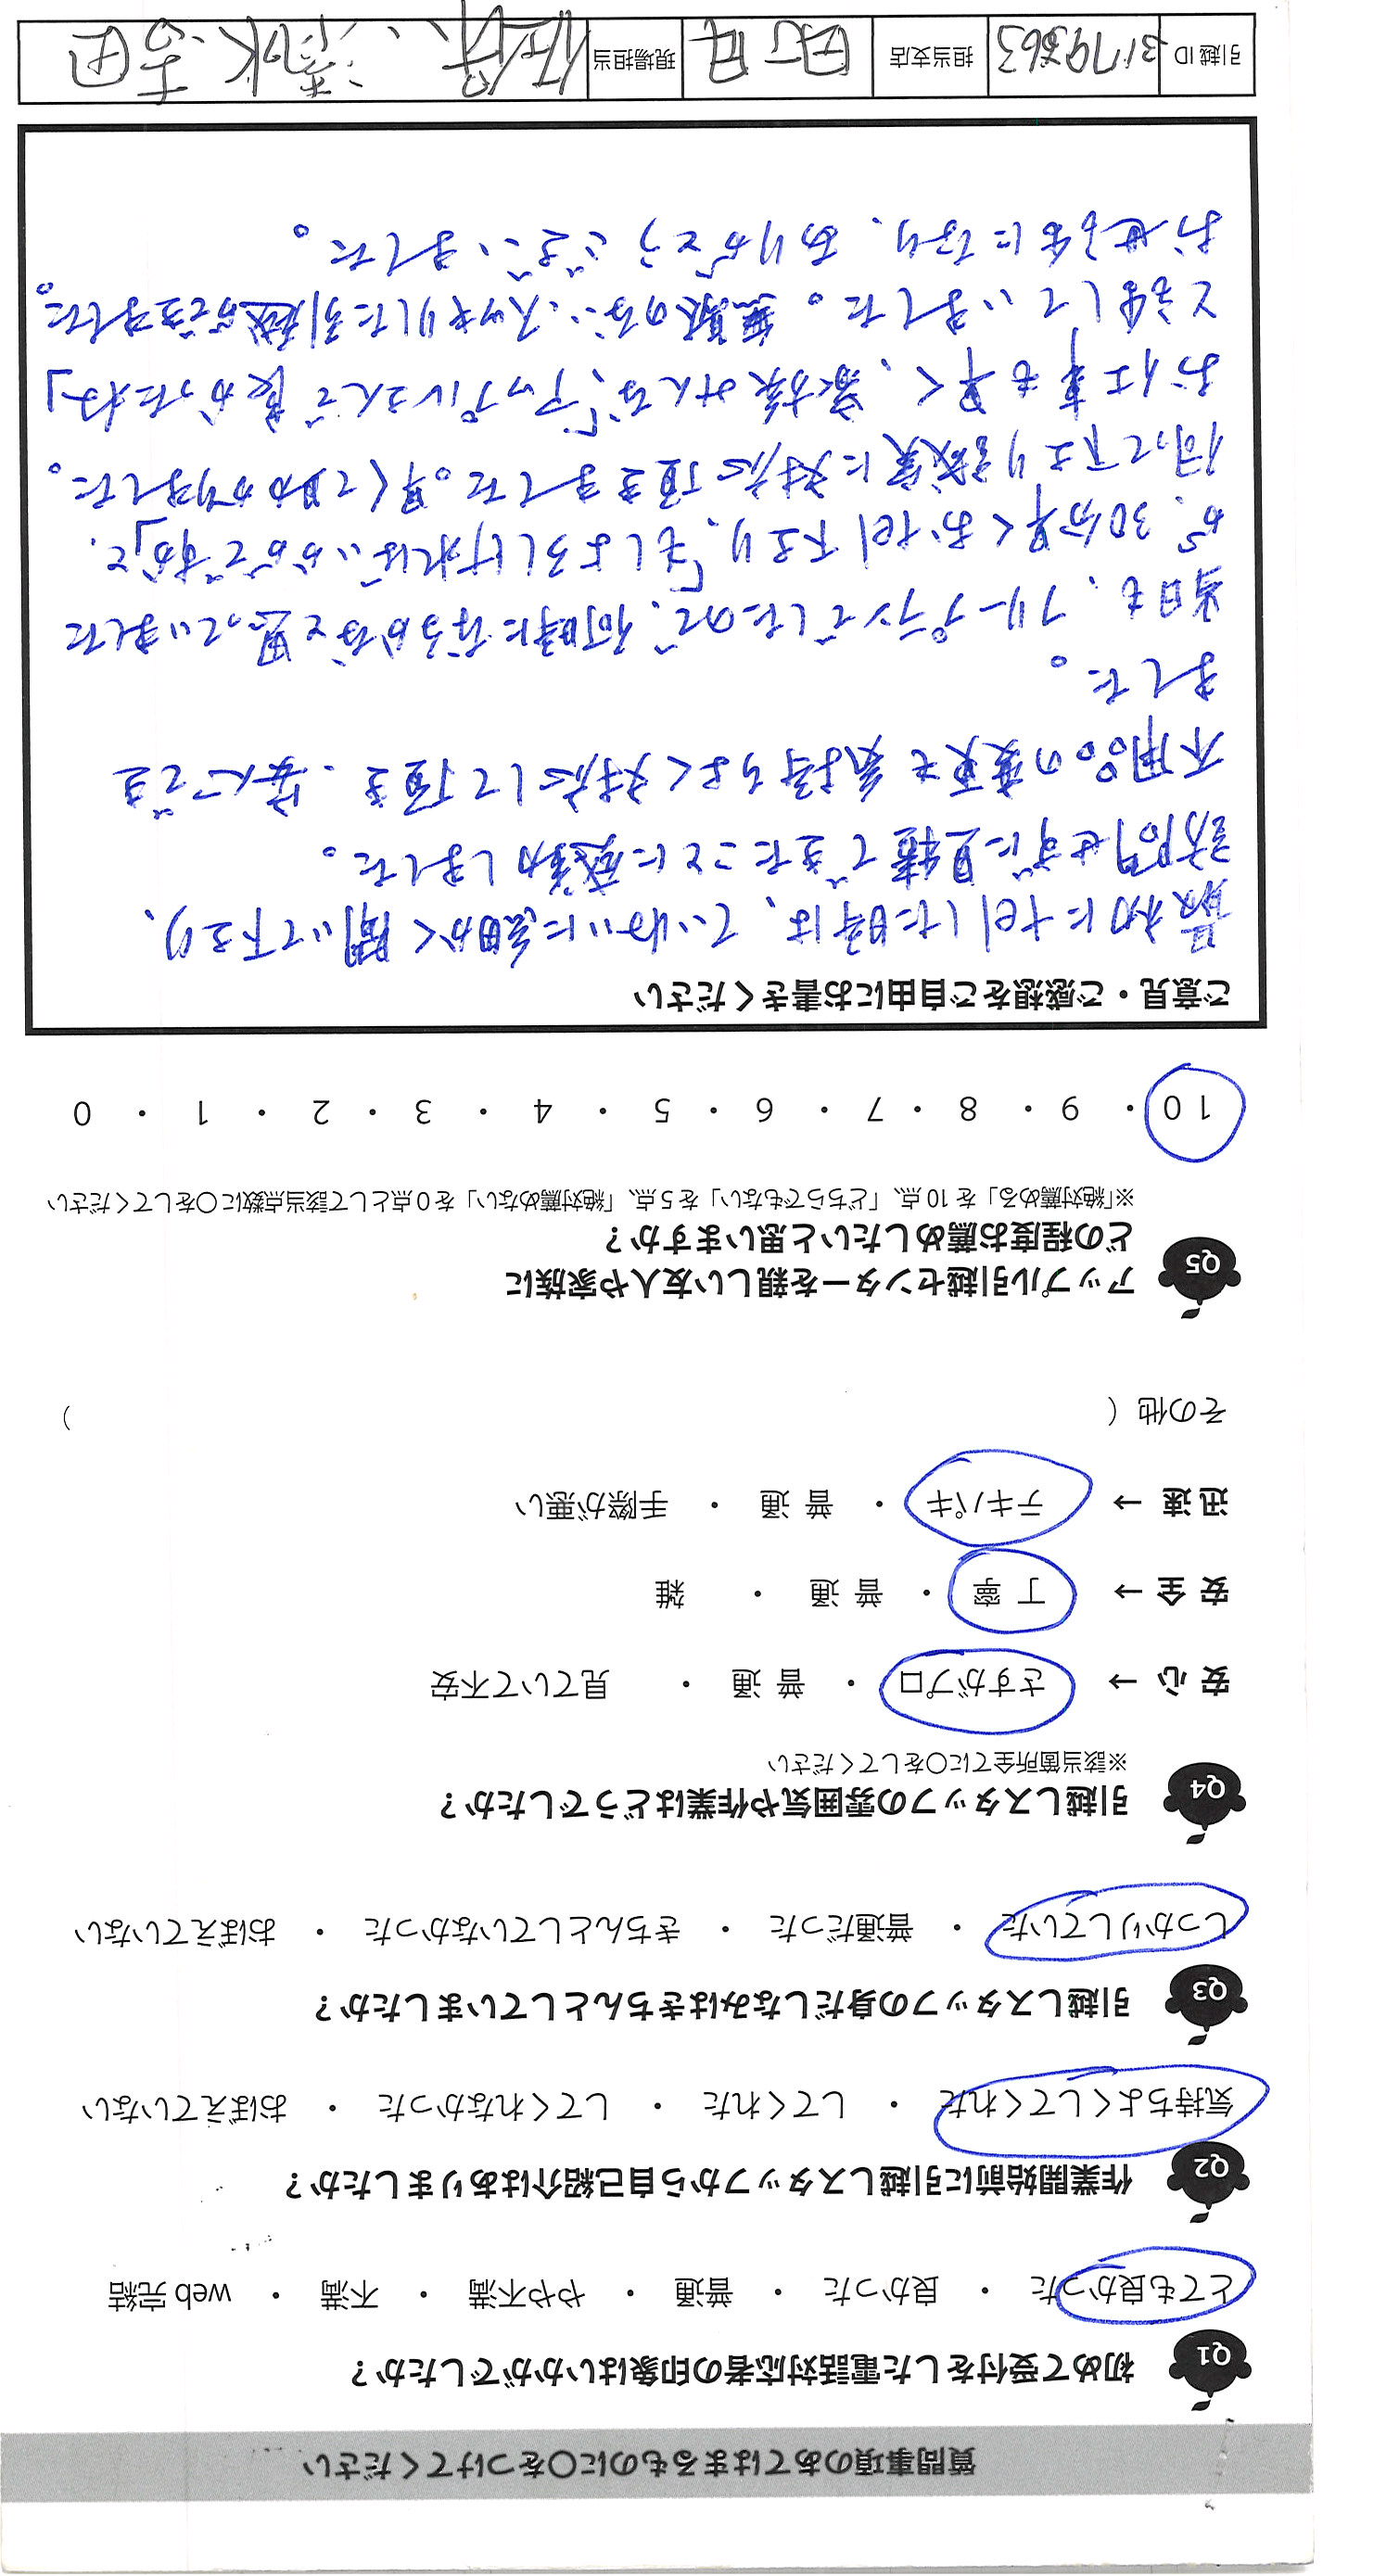 質問事項のあてはまるものに○をつけてください
Q1 初めて受付をした電話対応者の印象はいかがでしたか？
とても良かった ・ 良かった ・ 普通 ・ やや不満 ・ 不満 ・ web 完結
Q2 作業開始前に引越しスタッフから自己紹介はありましたか？
気持ちよくしてくれた ・ してくれた ・ してくれなかった ・ おぼえていない
Q3 引越しスタッフの身だしなみはきちんとしていましたか？
しっかりしていた ・ 普通だった ・ きちんとしていなかった ・ おぼえていない
Q4 引越しスタッフの雰囲気や作業はどうでしたか？
※該当箇所全てに○をしてください
安 心 → さすがプロ ・ 普 通 ・ 見ていて不安
安 全 → 丁 寧 ・ 普 通 ・ 雑
迅 速 → テキパキ ・ 普 通 ・ 手際が悪い
その他（ ）
Q5 アップル引越センターを親しい友人や家族に
どの程度お薦めしたいと思いますか？
※「絶対薦める」を 10 点、「どちらでもない」を 5 点、「絶対薦めない」を 0 点として該当点数に○をしてください
10 ・ 9 ・ 8 ・ 7 ・ 6 ・ 5 ・ 4 ・ 3 ・ 2 ・ 1 ・ 0
ご意見・ご感想をご自由にお書きください
最初にtelした時は、ていねいに細かく聞いて下さり、
訪問せずに見積できたことに感動しました。
不用品の変更も気持ちよく対応して頂き、安心でき
ました。
当日も、フリープランでしたので、何時になるかなと思っていました
が、30分早くお tel 下さり、「もしよろしければいかがですか」と、
伺って下さり誠実に対応頂きました。早くて助かりました。
お仕事も早く、家族みんな「アップルさんで良かったね」
と話していました。無駄のない、スッキリした引越ができました。
お世話になり、ありがとうございました。
引越 ID 3179863 担当支店 現場担当 清水、吉田